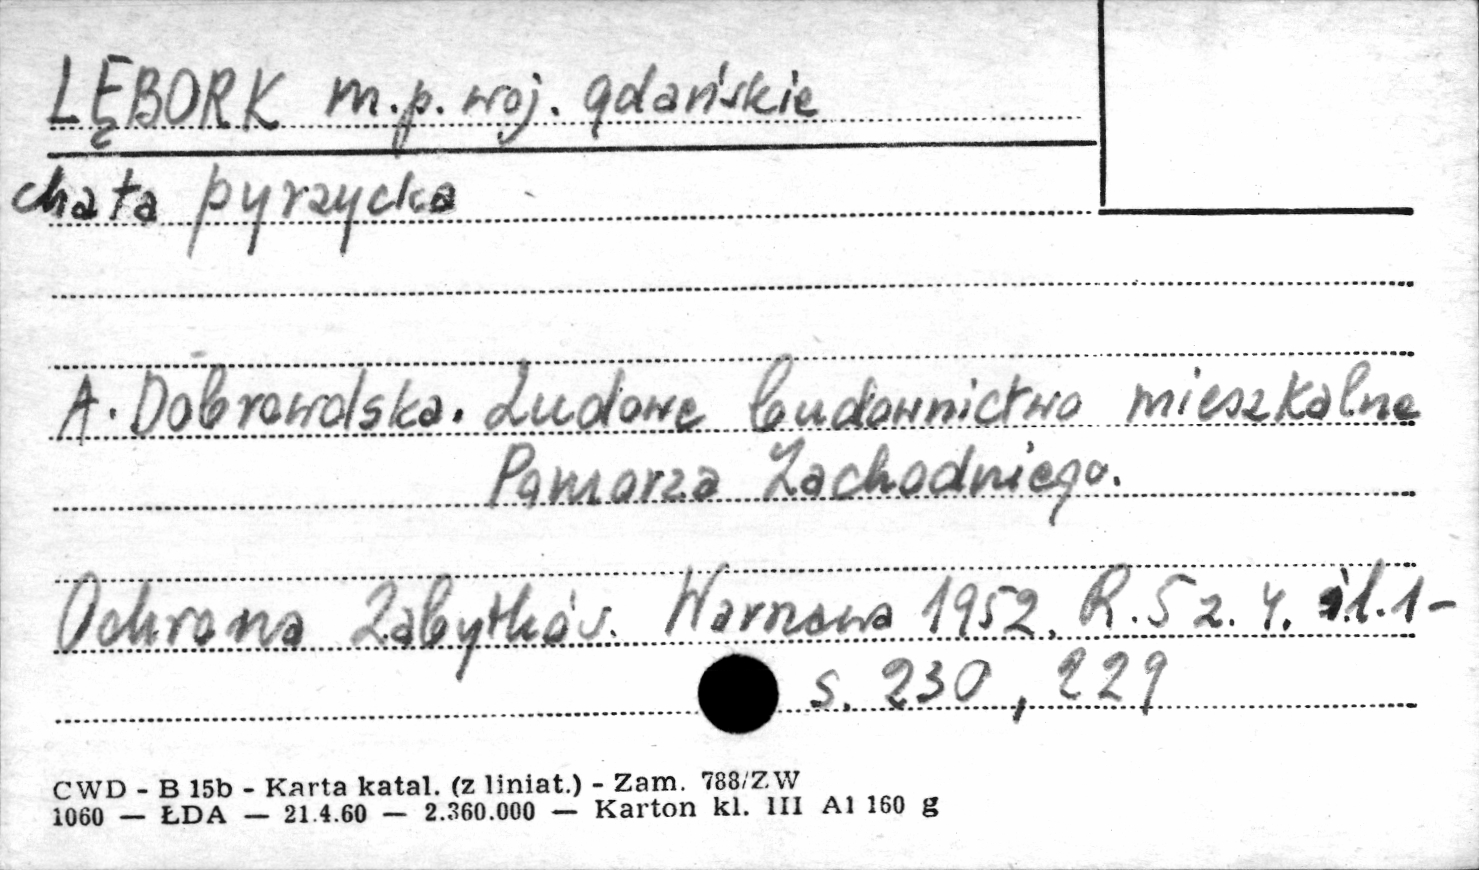 LĘBORK m.p. woj. gdańskie
chata pyrzycka
A. Dobrowolska. Ludowe budownictwo mieszkalne
Pomorza Zachodniego.
Ochrona Zabytków. Warszawa 1952. R. 5 z. 4. il. 1-
s. 230, 229
CWD - B 15b - Karta katal. (z liniat.) - Zam. 788/ZW
1060 — ŁDA — 21.4.60 — 2.360.000 — Karton kl. III A1 160 g